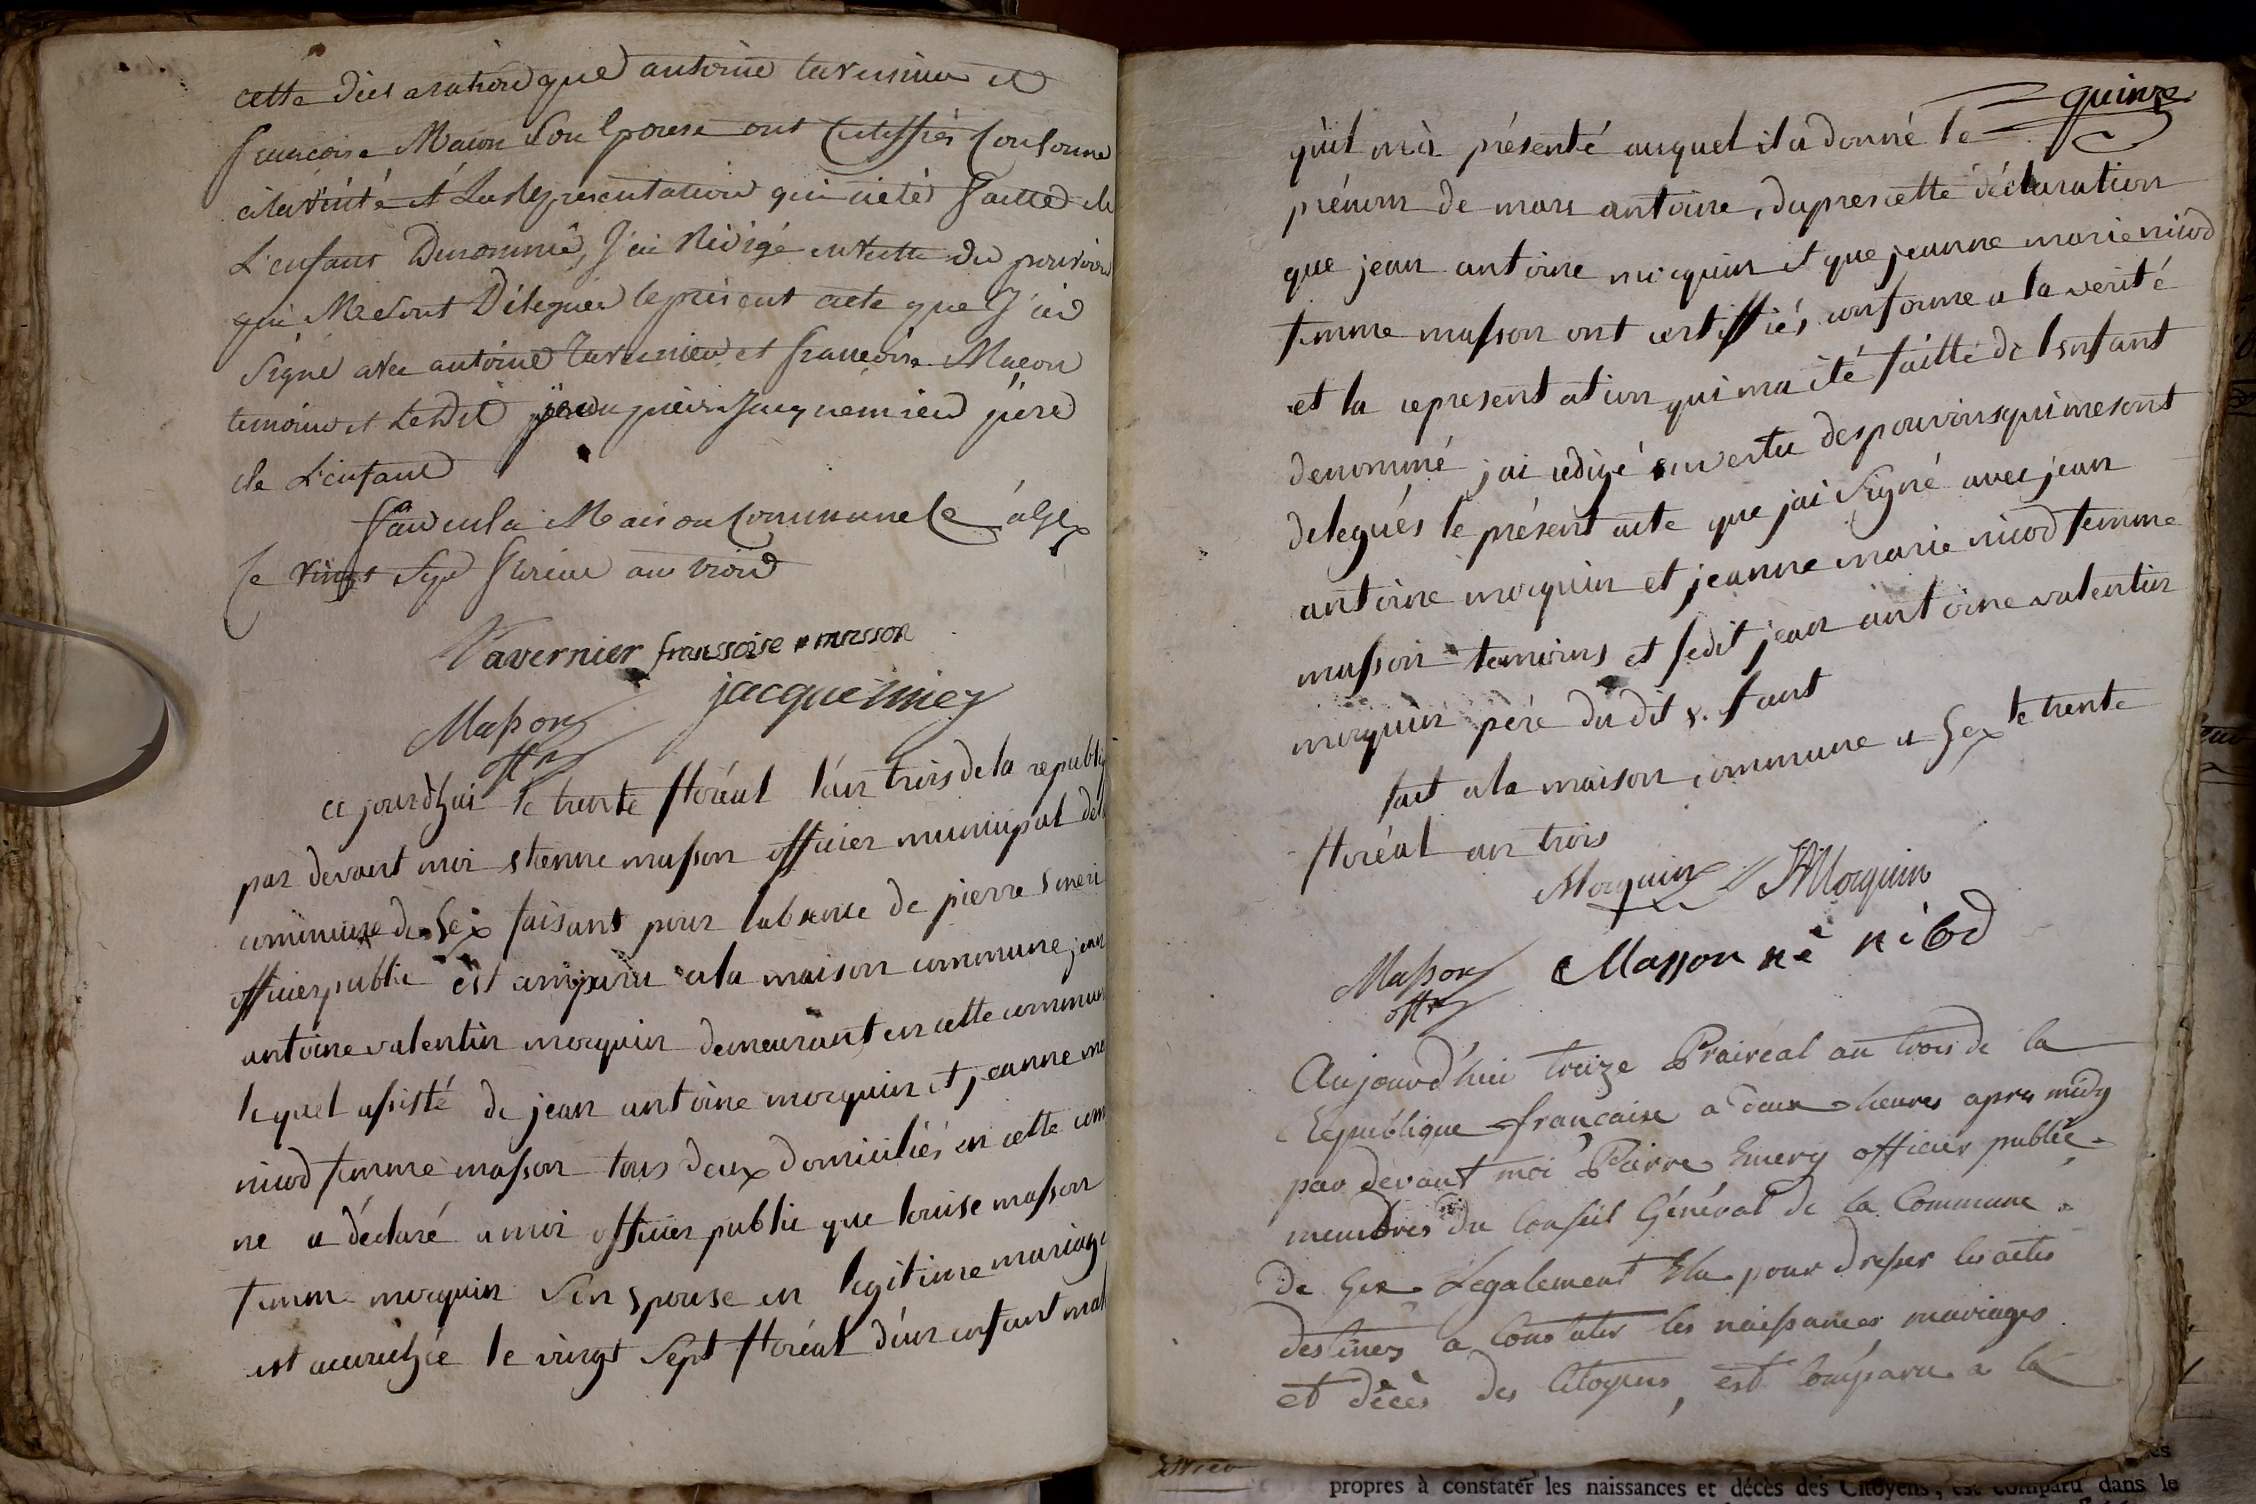 cette declaration que antoine tavernier et
francoise Macon son Epouse ont Certiffiés Conforme
a la vérité et La Representation qui m'a été faitte de
L'enfant Denommé, J'ai Redigé en vertu des pouvoirs
qui Me sont Délegués le present acte que J'ai
signé avec antoine tavernier et francoise Macon
temoins et Le dit pierre Jacquemier père
de L'enfant
fait en la Maison Commune de Gex
le vingt Sept floreal an trois
Tavernier franssoise masson
jacquemier
Masson
offr
ce jourdhui le trente floréal l'an trois de la republiq
par devant moi etienne masson officier municipal de
commune de Gex faisant pour labsence de pierre emeri
officier public est comparu a la maison commune jean
antoine valentin morquin demeurant en cette commun
lequel assisté de jean antoine morquin et jeanne ma
nicod femme masson tous deux domiciliés en cette com
ne a déclaré a moi officier public que louise masson
femme morquin son epouse en legitime mariage
est accouchée le vingt sept floréal d'un enfant mal
quinze
quil m'a présenté auquel il a donné le
prénom de marc antoine, dapres cette déclaration
que jean antoine morquin et que jeanne marie nicod
femme masson ont certiffiés conforme a la verité
et la representation qui ma été faitte de l'enfant
denommé jai redigé en vertu des pouvoirs qui me sont
delegués le présent acte que jai signé avec jean
antoine morquin et jeanne marie nicod femme
masson temoins et ledit jean antoine valentin
morquin père du dit enfant
fait a la maison commune a Gex le trente
floréal an trois
Morquin JAMorquin
Masson Masson né nicod
offr
Aujourd'hui treize Prairéal an trois de la
République francaise a deux heures apres midy
par devant moi Pierre Emery officier public
membres du Conseil Général de la Commune
de Gex Légalement Elu pour dresser les actes
destinés a Constater les naissances mariages
et décès des Citoyens, est Comparu a la
propres à constater les naissances et décès des Citoyens, est comparu dans le